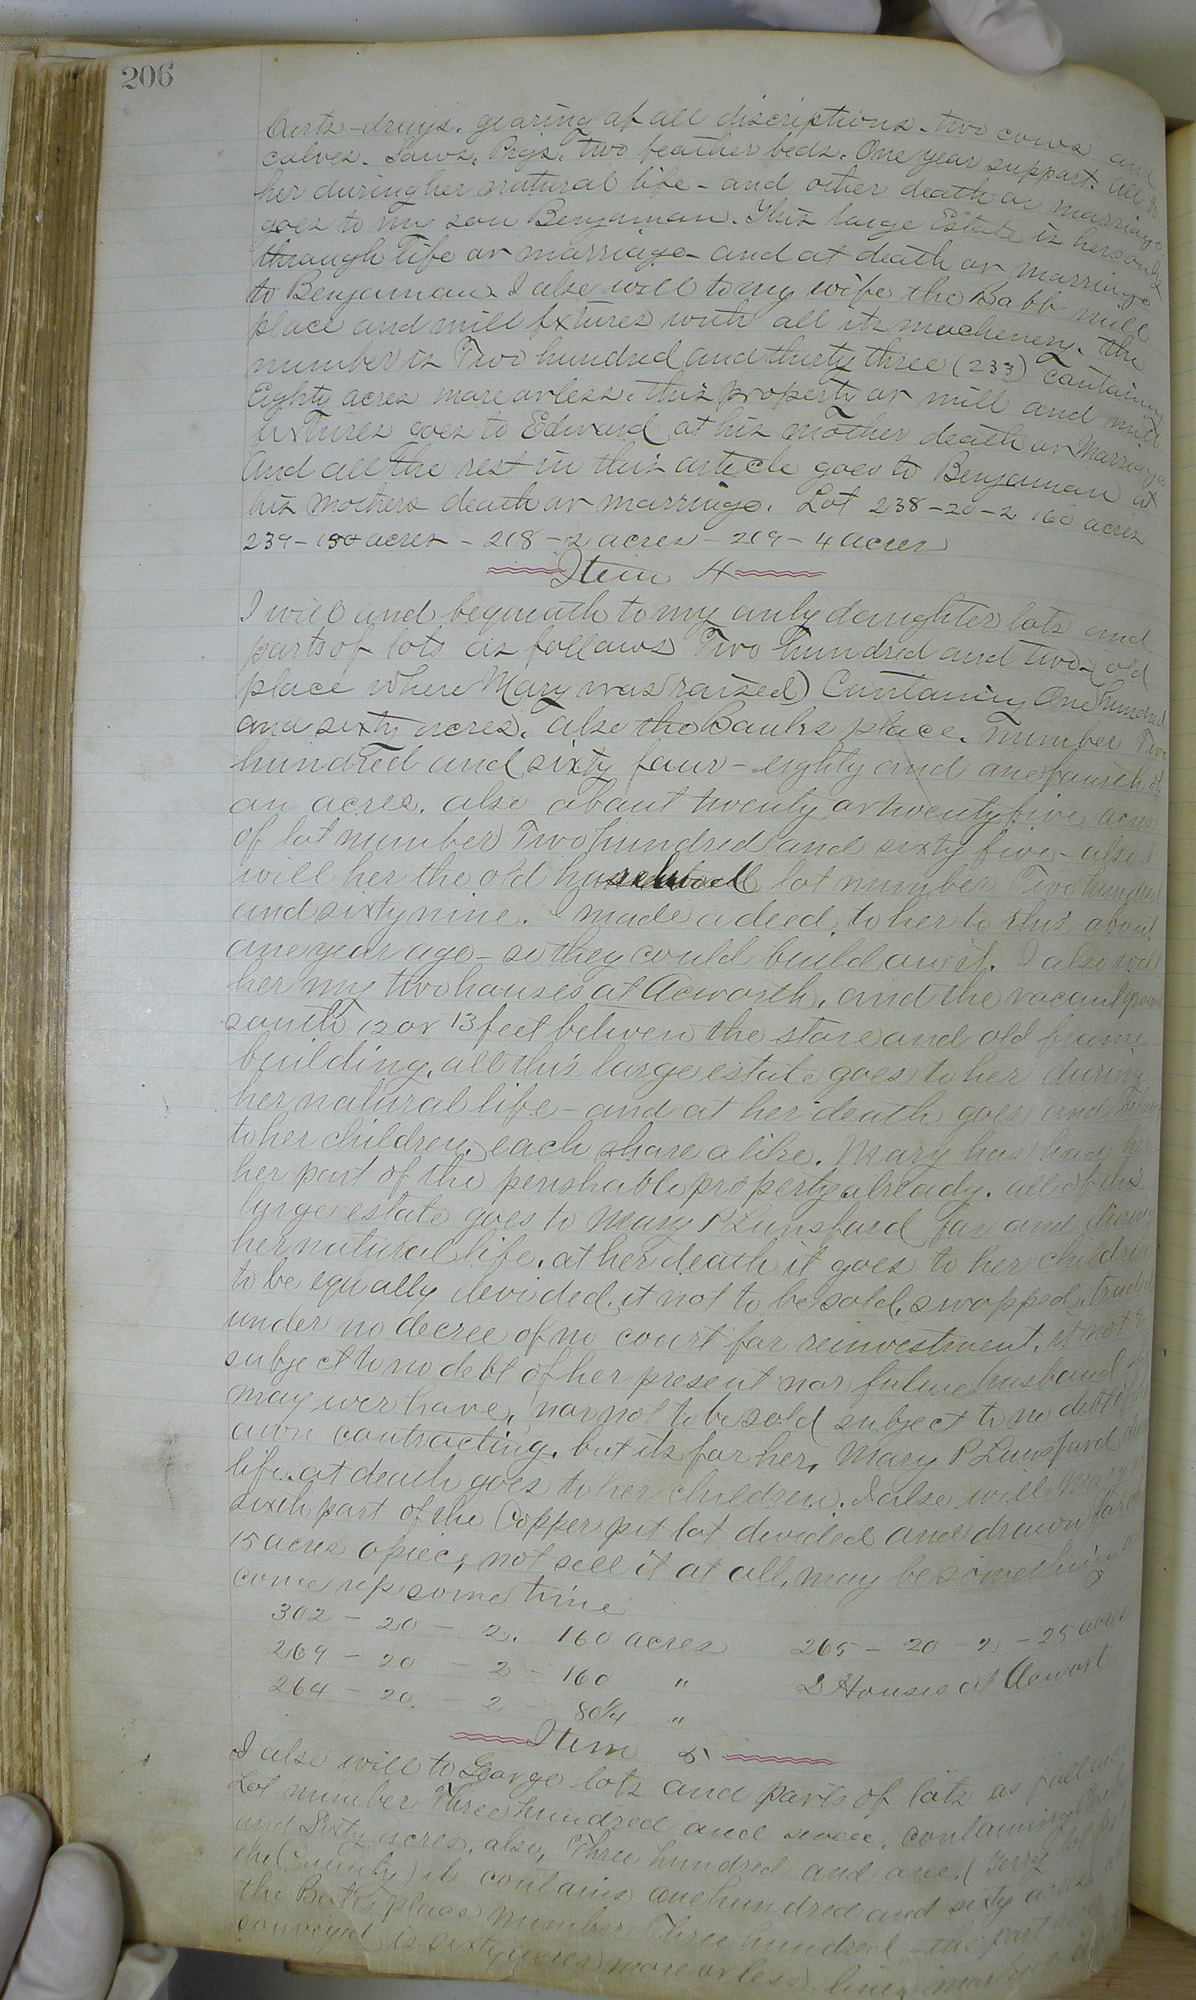 206
Carts - drays. gearing of all discriptions. two cows and
calves. Saws, Pigs. two feather beds. One year support. all to
her during her natural life - and other death or marriage
goes to my son Benjaman. This large Estate is hers only
through life or marriage - and at death or marriage
to Benjaman. I also will to my wife the Babb mill
place and mill fxtures with all its machenery. the
number is Two hundred and thirty three (233) Containing
Eighty acres more or less. this property or mill and mill
fixtures goes to Edward at his Mother death or Marriage
And all the rest in this article goes to Benjaman at
his mothers death or marriage. Lot 238-20-2 160 acres
239 - 150 acres - 218 - 2 acres - 219 - 4 acres
Item 4
I will and beqneath to my only daughter lots and
parts of lots as follows Two hundred and two (old
place where Mary was raized) Containing One hundred
and sixty acres. also the Banks place. number Two
hundred and sixty four - eighty and one fourth of
an acres. also about twenty or twenty five acres
of lot number Two hundred and sixty five - also
will her the old lot number Two hundred
and sixty nine. I made a deed to her to this about
one year ago - so they could build on it. I also will
her my two houses at Acworth, and the vacant ground
south 12 or 13 feet betwen the store and old frame
building, all this large estate goes to her during
her natural life - and at her death goes and
to her children, each share alike. Mary has had
her part of the perishable property already. all of this
large estate goes to Mary P Lunsford for and during
her natural life. at her death it goes to her children
to be equally devided, it not to be sold, swopped, traded
under no decree of no court for reinvestment, it not
subject to no debt of her present nor future husband she
may ever have, nor not to be sold subject to no debt of
own contracting, but its for her, Mary P Lunsford
life. at death goes to her children. I also will Mary
sixth part of the Copper pit lot devided and drawn for
15 acres apiece, not sell it at all, may be something
come up some time
302 - 20 - 2. 160 acres 265 - 20 - 2 - 25 acres
269 - 20 - 2 - 160 " 2 Houses at Acwort
264 - 20. - 2 80 1/4 "
Item 5
I also will to George lots and parts of lots as follows
Lot number Three hundred and containing
and Sixty acres, also, Three hundred and one. (Terry
the County) it contains one hundred and sixty acres
the place number Three hundred - the part
conveyed is sixty acres more or less